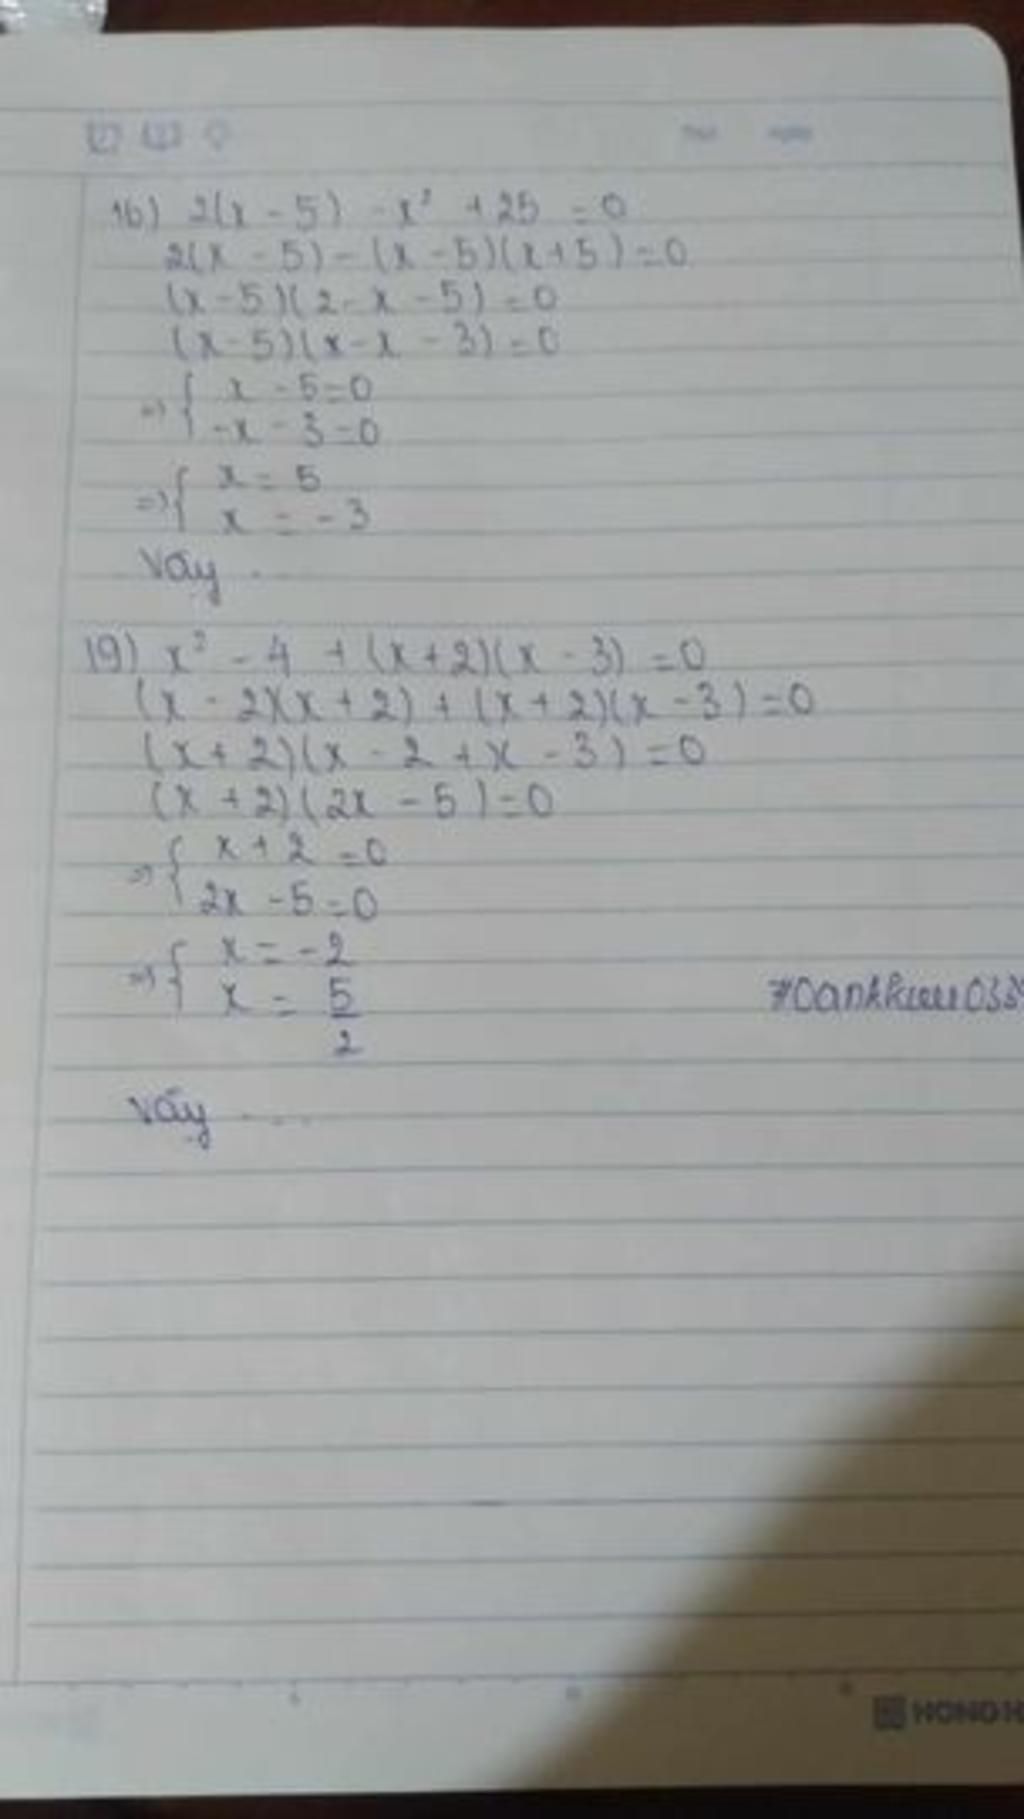 16) 2(x - 5) - x² + 25 = 0
2(x - 5) - (x - 5)(x + 5) = 0
(x - 5)(2 - x - 5) = 0
(x - 5)(x - x - 3) = 0
=> { x - 5 = 0
-x - 3 = 0
=> { x = 5
x = -3
Vậy ..
19) x² - 4 + (x + 2)(x - 3) = 0
(x - 2)(x + 2) + (x + 2)(x - 3) = 0
(x + 2)(x - 2 + x - 3) = 0
(x + 2)(2x - 5) = 0
=> { x + 2 = 0
2x - 5 = 0
=> { x = -2
x = 5/2
Vậy ....
HONG H